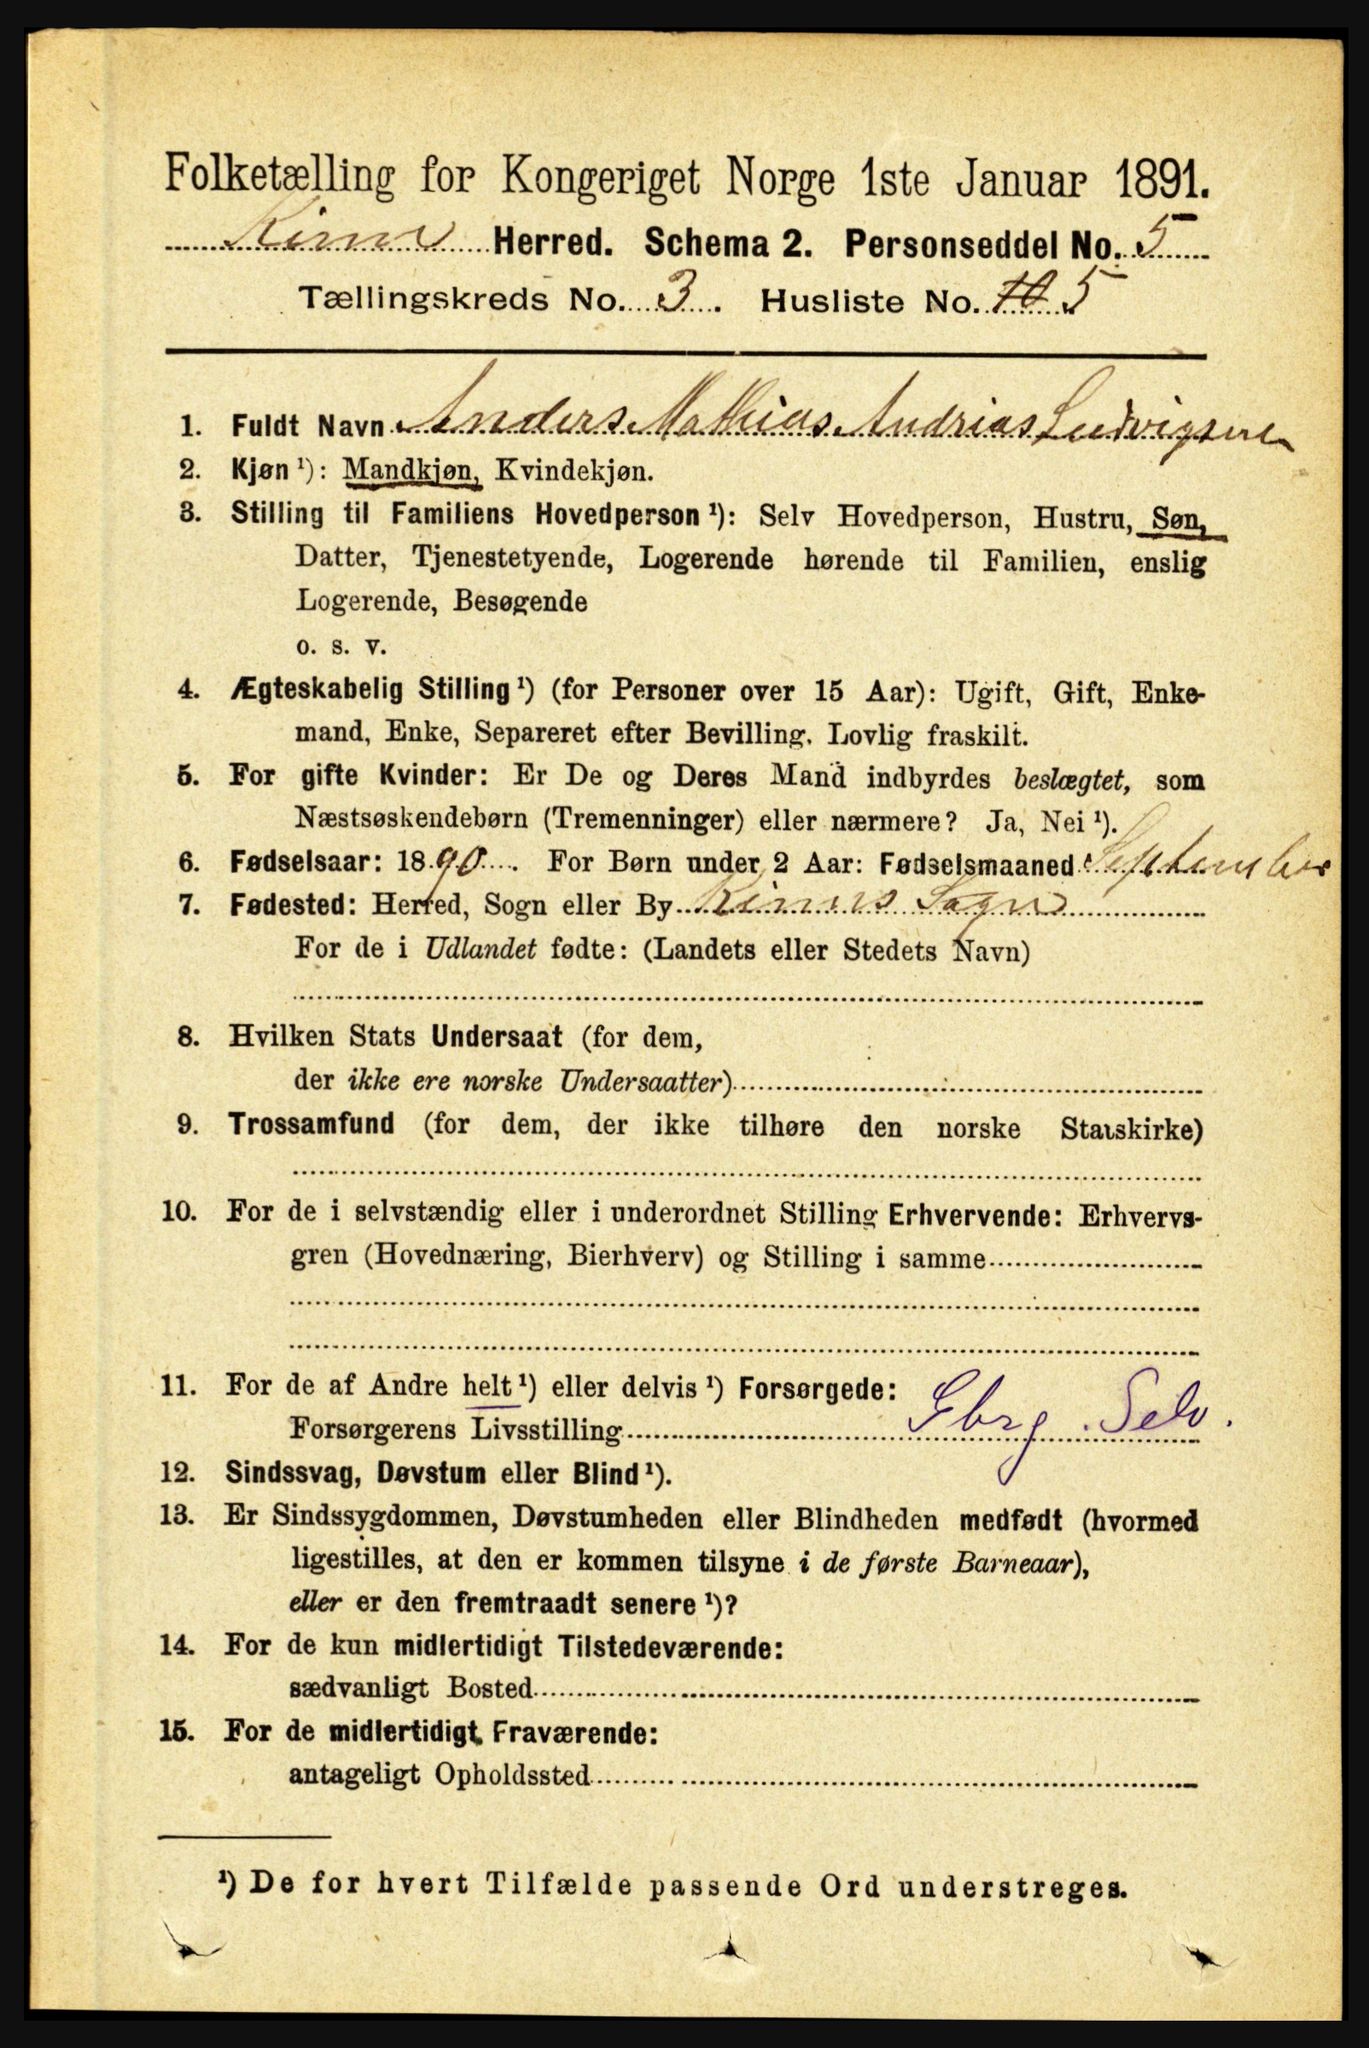 Folketælling for Kongeriget Norge 1ste Januar 1891.
Kinn Herred. Schema 2. Personseddel No. 5
Tællingskreds No. 3. Husliste No. 10 5
1. Fuldt Navn Anders Mathias Andrias Ludvigsen
2. Kjøn ¹): Mandkjøn, Kvindekjøn.
3. Stilling til Familiens Hovedperson ¹): Selv Hovedperson, Hustru, Søn,
Datter, Tjenestetyende, Logerende hørende til Familien, enslig
Logerende, Besøgende
o. s. v.
4. Ægteskabelig Stilling ¹) (for Personer over 15 Aar): Ugift, Gift, Enke-
mand, Enke, Separeret efter Bevilling. Lovlig fraskilt.
5. For gifte Kvinder: Er De og Deres Mand indbyrdes beslægtet, som
Næstsøskendebørn (Tremenninger) eller nærmere? Ja, Nei ¹).
6. Fødselsaar: 1890. For Børn under 2 Aar: Fødselsmaaned September
7. Fødested: Herred, Sogn eller By Kinns Sogn
For de i Udlandet fødte: (Landets eller Stedets Navn)
8. Hvilken Stats Undersaat (for dem,
der ikke ere norske Undersaatter)
9. Trossamfund (for dem, der ikke tilhøre den norske Statskirke)
10. For de i selvstændig eller i underordnet Stilling Erhvervende: Erhvervs-
gren (Hovednæring, Bierhverv) og Stilling i samme
11. For de af Andre helt ¹) eller delvis ¹) Forsørgede:
Forsørgerens Livsstilling Gbrg. Selv.
12. Sindssvag, Døvstum eller Blind ¹).
13. Er Sindssygdommen, Døvstumheden eller Blindheden medfødt (hvormed
ligestilles, at den er kommen tilsyne i de første Barneaar),
eller er den fremtraadt senere ¹)?
14. For de kun midlertidigt Tilstedeværende:
sædvanligt Bosted
15. For de midlertidigt Fraværende:
antageligt Opholdssted
¹) De for hvert Tilfælde passende Ord understreges.